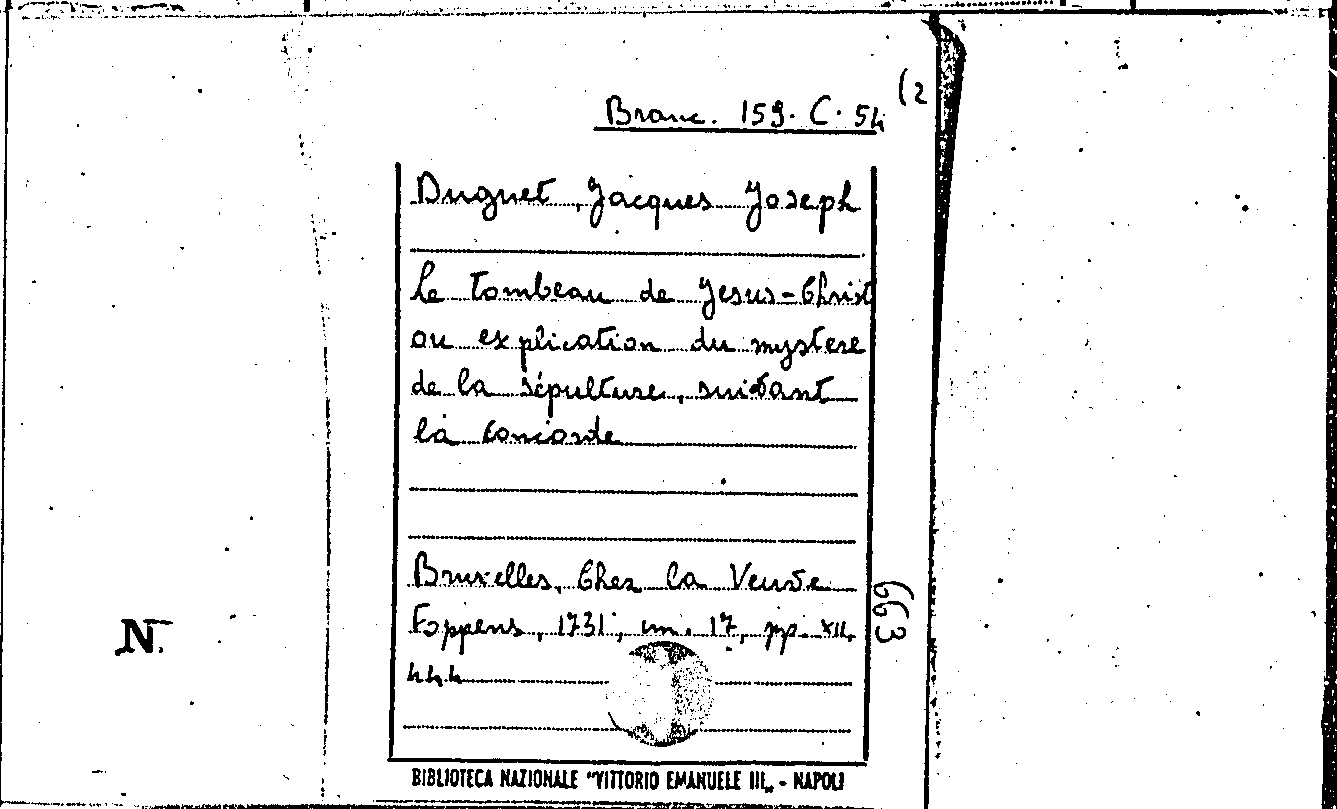 (2
Branc. 159. C. 54
Duguet, Jacques Joseph
Le Tombeau de Jesus-Christ
ou explication du mystere
de la sépulture, suivant
la concorde
Bruxelles, Chez la Veuve
Foppens, 1731, in. 17, pp. XII,
444
663
N.
BIBLIOTECA NAZIONALE "VITTORIO EMANUELE III„ - NAPOLI